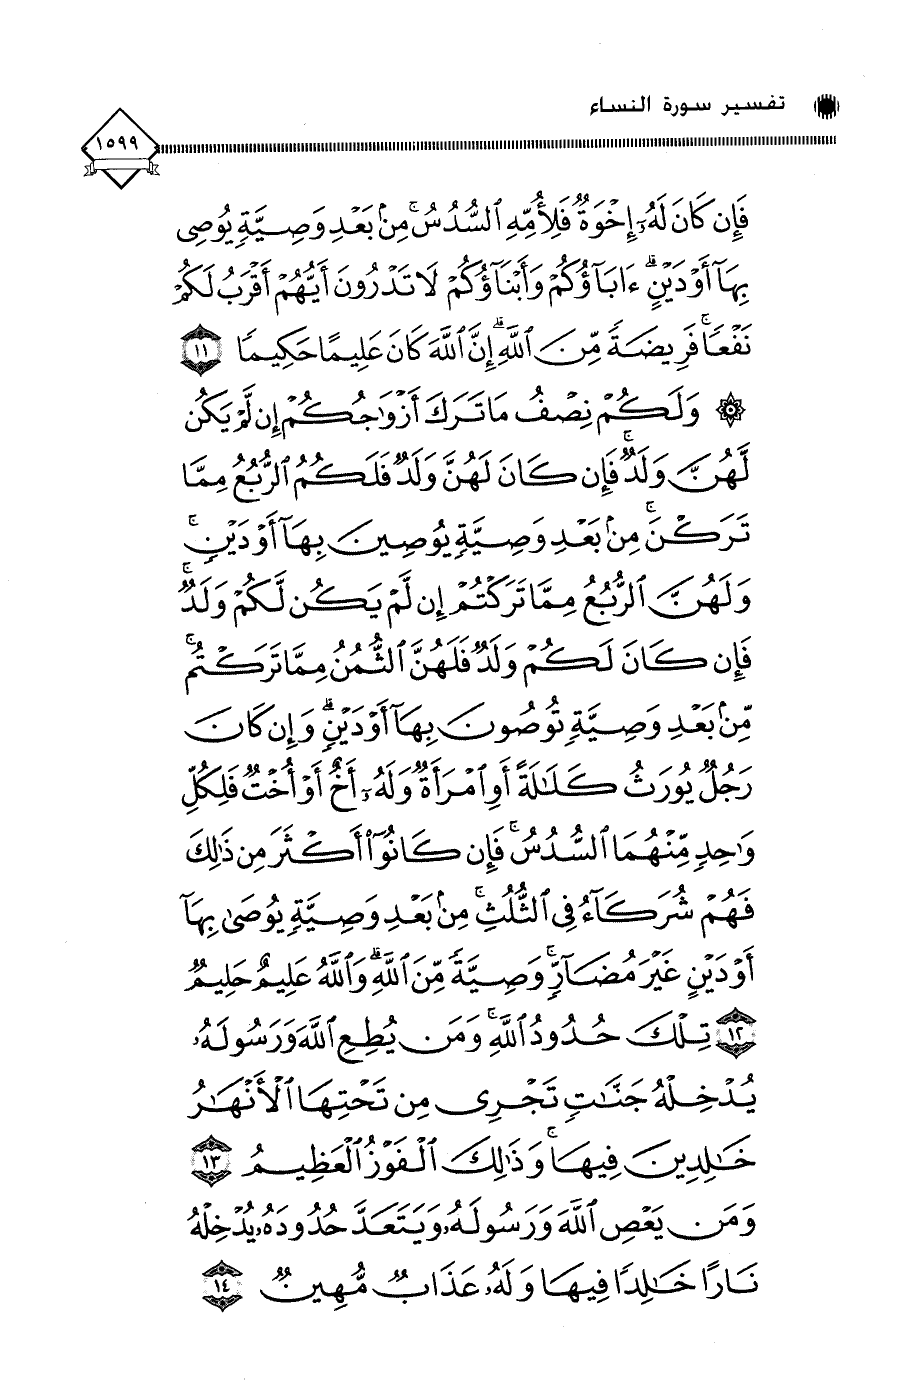 تفسير سورة النساء
١٥٩٩
فَإِن كَانَ لَهُۥٓ إِخْوَةٌ فَلِأُمِّهِ ٱلسُّدُسُ ۚ مِنۢ بَعْدِ وَصِيَّةٍ يُوصِى
بِهَآ أَوْ دَيْنٍ ۗ ءَابَآؤُكُمْ وَأَبْنَآؤُكُمْ لَا تَدْرُونَ أَيُّهُمْ أَقْرَبُ لَكُمْ
نَفْعًا ۚ فَرِيضَةً مِّنَ ٱللَّهِ ۗ إِنَّ ٱللَّهَ كَانَ عَلِيمًا حَكِيمًا ١١
۞ وَلَكُمْ نِصْفُ مَا تَرَكَ أَزْوَٰجُكُمْ إِن لَّمْ يَكُن
لَّهُنَّ وَلَدٌ ۚ فَإِن كَانَ لَهُنَّ وَلَدٌ فَلَكُمُ ٱلرُّبُعُ مِمَّا
تَرَكْنَ ۚ مِنۢ بَعْدِ وَصِيَّةٍ يُوصِينَ بِهَآ أَوْ دَيْنٍ ۚ
وَلَهُنَّ ٱلرُّبُعُ مِمَّا تَرَكْتُمْ إِن لَّمْ يَكُن لَّكُمْ وَلَدٌ ۚ
فَإِن كَانَ لَكُمْ وَلَدٌ فَلَهُنَّ ٱلثُّمُنُ مِمَّا تَرَكْتُم ۚ
مِّنۢ بَعْدِ وَصِيَّةٍ تُوصُونَ بِهَآ أَوْ دَيْنٍ ۗ وَإِن كَانَ
رَجُلٌ يُورَثُ كَلَٰلَةً أَوِ ٱمْرَأَةٌ وَلَهُۥٓ أَخٌ أَوْ أُخْتٌ فَلِكُلِّ
وَٰحِدٍ مِّنْهُمَا ٱلسُّدُسُ ۚ فَإِن كَانُوٓا۟ أَكْثَرَ مِن ذَٰلِكَ
فَهُمْ شُرَكَآءُ فِى ٱلثُّلُثِ ۚ مِنۢ بَعْدِ وَصِيَّةٍ يُوصَىٰ بِهَآ
أَوْ دَيْنٍ غَيْرَ مُضَآرٍّ ۚ وَصِيَّةً مِّنَ ٱللَّهِ ۗ وَٱللَّهُ عَلِيمٌ حَلِيمٌ
١٢ تِلْكَ حُدُودُ ٱللَّهِ ۚ وَمَن يُطِعِ ٱللَّهَ وَرَسُولَهُۥ
يُدْخِلْهُ جَنَّٰتٍ تَجْرِى مِن تَحْتِهَا ٱلْأَنْهَٰرُ
خَٰلِدِينَ فِيهَا ۚ وَذَٰلِكَ ٱلْفَوْزُ ٱلْعَظِيمُ ١٣
وَمَن يَعْصِ ٱللَّهَ وَرَسُولَهُۥ وَيَتَعَدَّ حُدُودَهُۥ يُدْخِلْهُ
نَارًا خَٰلِدًا فِيهَا وَلَهُۥ عَذَابٌ مُّهِينٌ ١٤